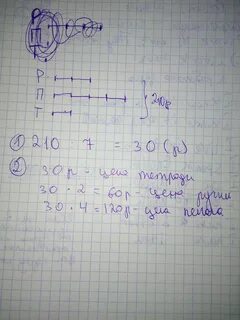 Р
П 210р
Т
① 210 : 7 = 30 (р)
② 30 р - цена тетради
30 · 2 = 60р - цена ручки
30 · 4 = 120р - цена пенала